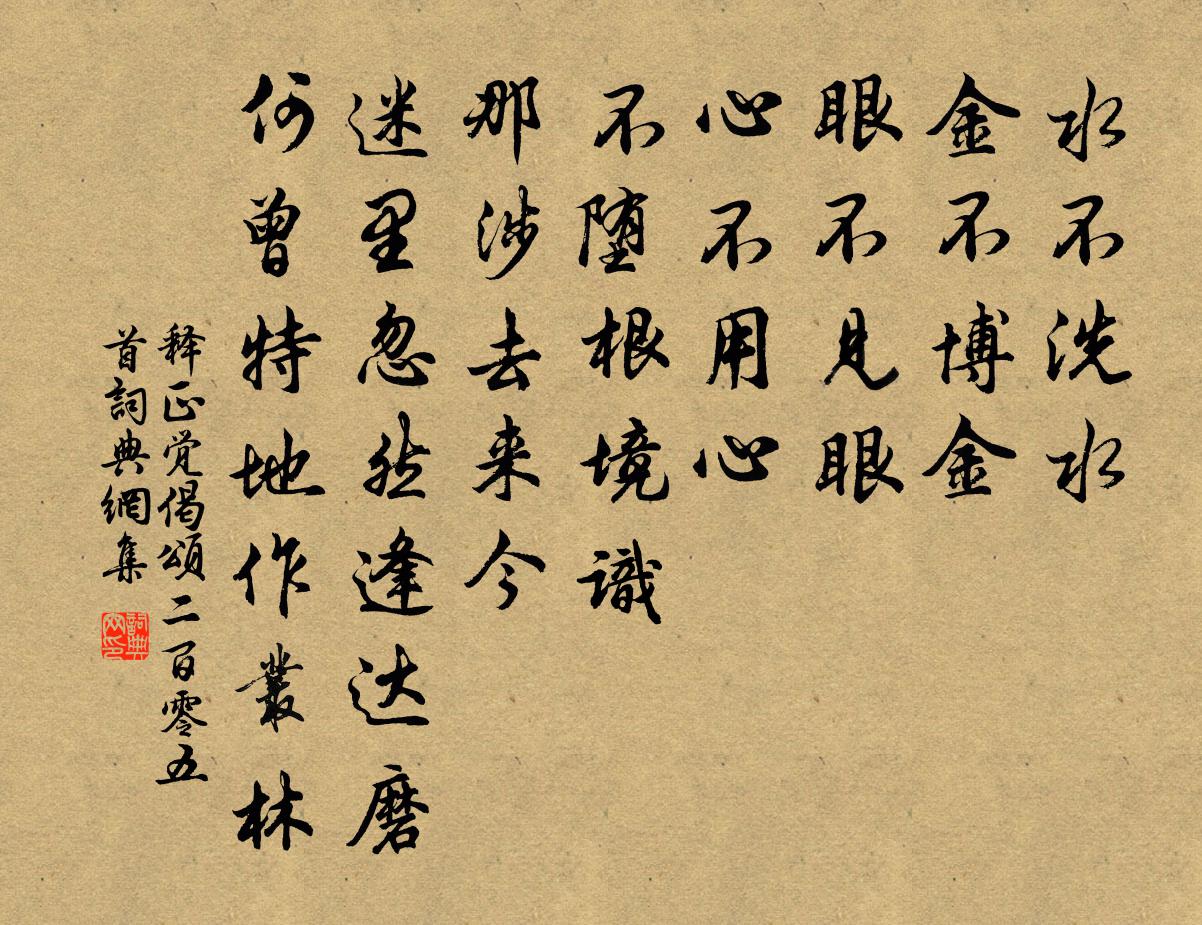 水不洗水
金不博金
眼不见眼
心不用心
不堕根境識
那涉去来今
迷里忽然逢达磨
何曾特地作叢林
释正觉偈頌二百零五
首詞典網集
詞典
网印